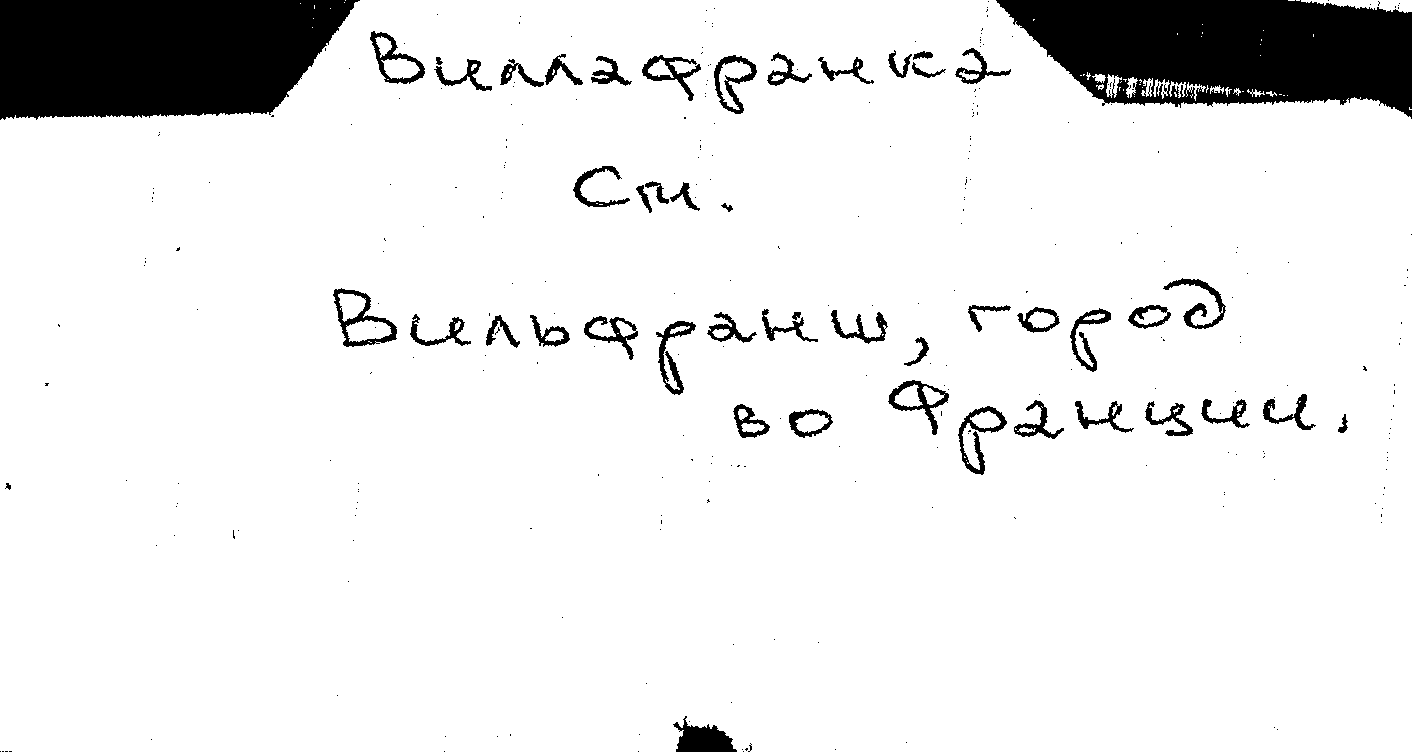 Виллафранка
См.
Вильфранш, город
во Франции.